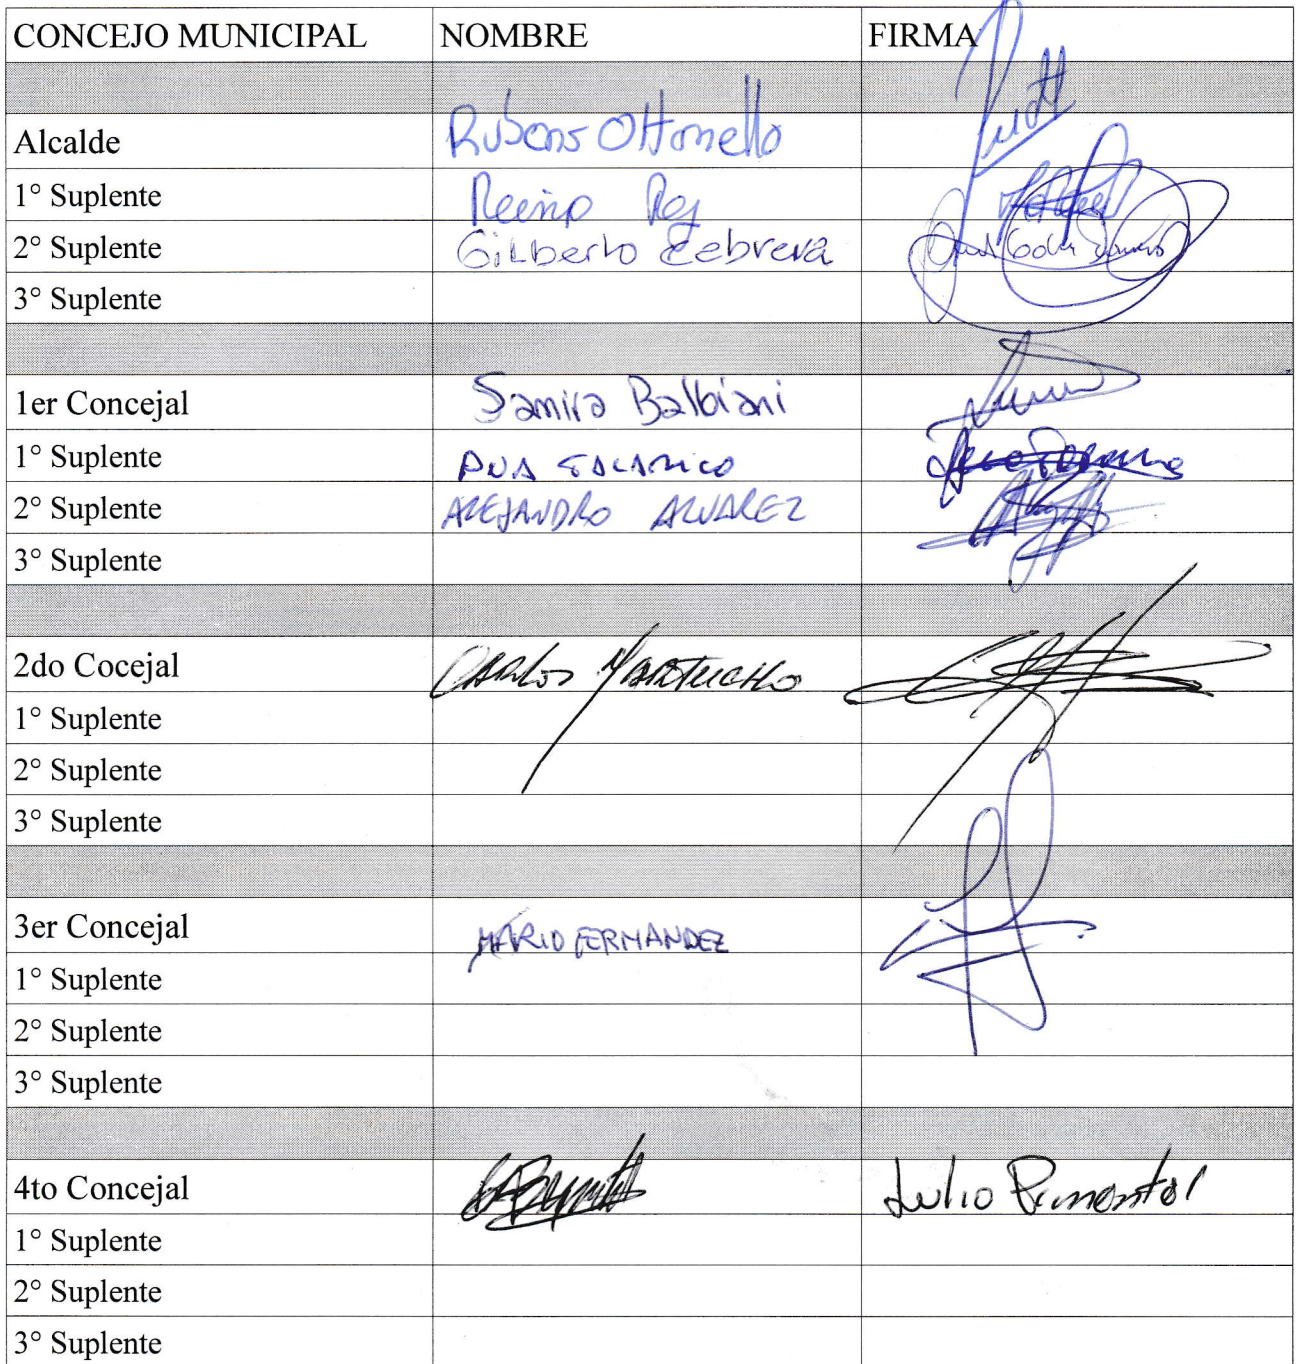 CONCEJO MUNICIPAL NOMBRE FIRMA
Alcalde Rubens Ottonello
1° Suplente
2° Suplente Gilberto Cebrera
3° Suplente
1er Concejal Samira Balbiani
1° Suplente
2° Suplente ALEJANDRO ALVAREZ
3° Suplente
2do Cocejal Carlos
1° Suplente
2° Suplente
3° Suplente
3er Concejal MARIO FERNANDEZ
1° Suplente
2° Suplente
3° Suplente
4to Concejal Julio Pimentel
1° Suplente
2° Suplente
3° Suplente